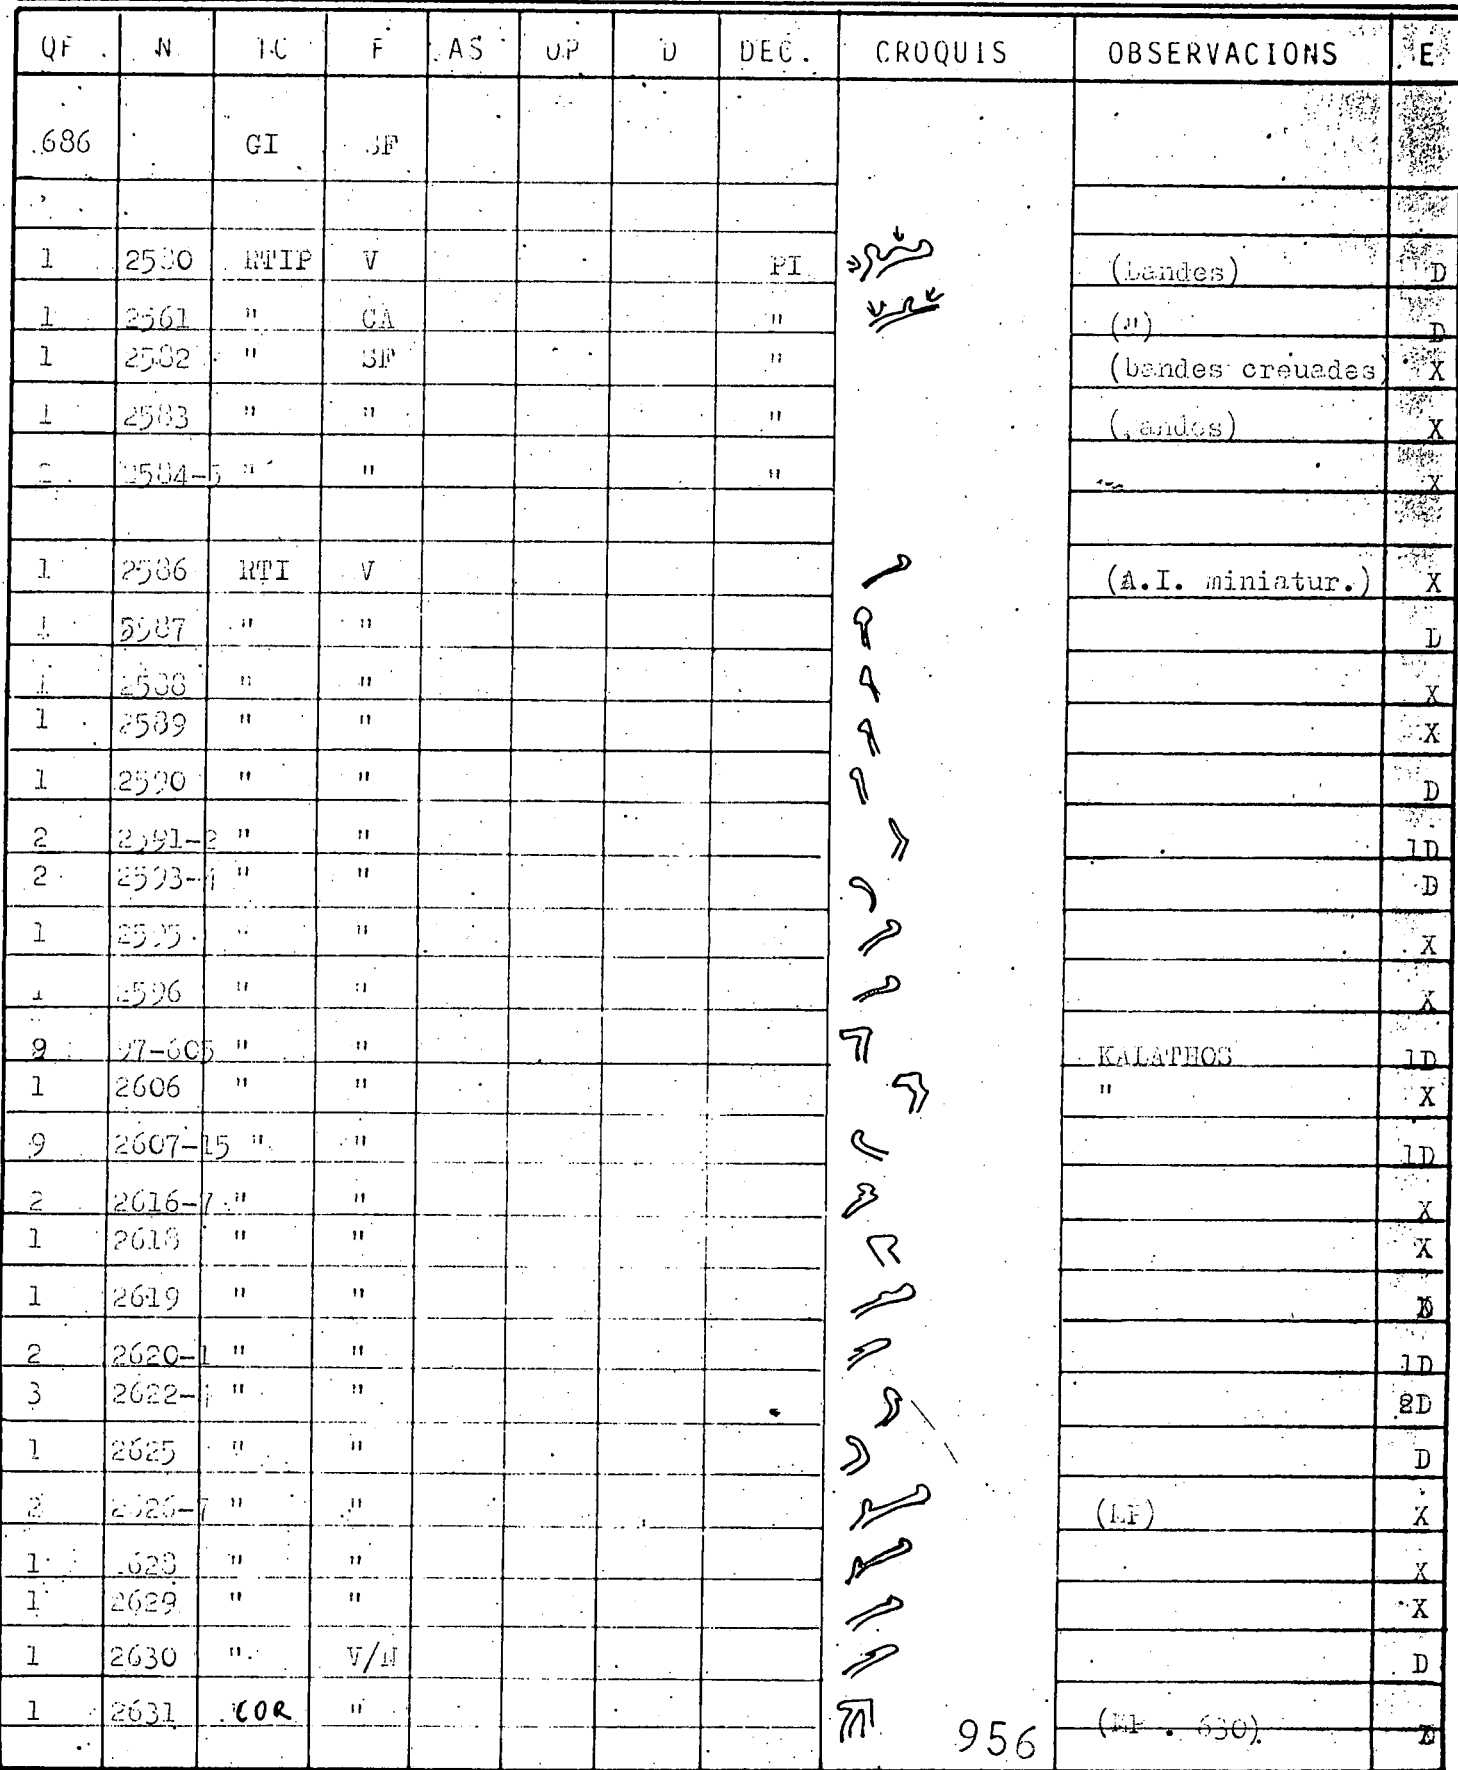 QF N TC F AS OP D DEC. CROQUIS OBSERVACIONS E
686 GI SF
1 2580 RTIP V PI (bandes) D
1 2561 " CA " (") D
1 2582 " SF " (bandes creuades) X
1 2583 " " " (bandes) X
2584-5 " " " X
1 2586 RTI V (A.I. miniatur.) X
1 5987 " " D
1 2588 " " X
1 2589 " " X
1 2590 " " D
2 2591-2 " " 1D
2 2593-4 " " D
1 2595 " " X
1 2596 " " X
9 97-605 " " KALATHOS 1D
1 2606 " " " X
9 2607-15 " " 1D
2 2616-7 " " X
1 2618 " " X
1 2619 " "
2 2620-1 " " 1D
3 2622-4 " " 2D
1 2625 " " D
2 2626-7 " " X
1 628 " " X
1 2629 " " X
1 2630 " V/N D
1 2631 COR " 630)
956